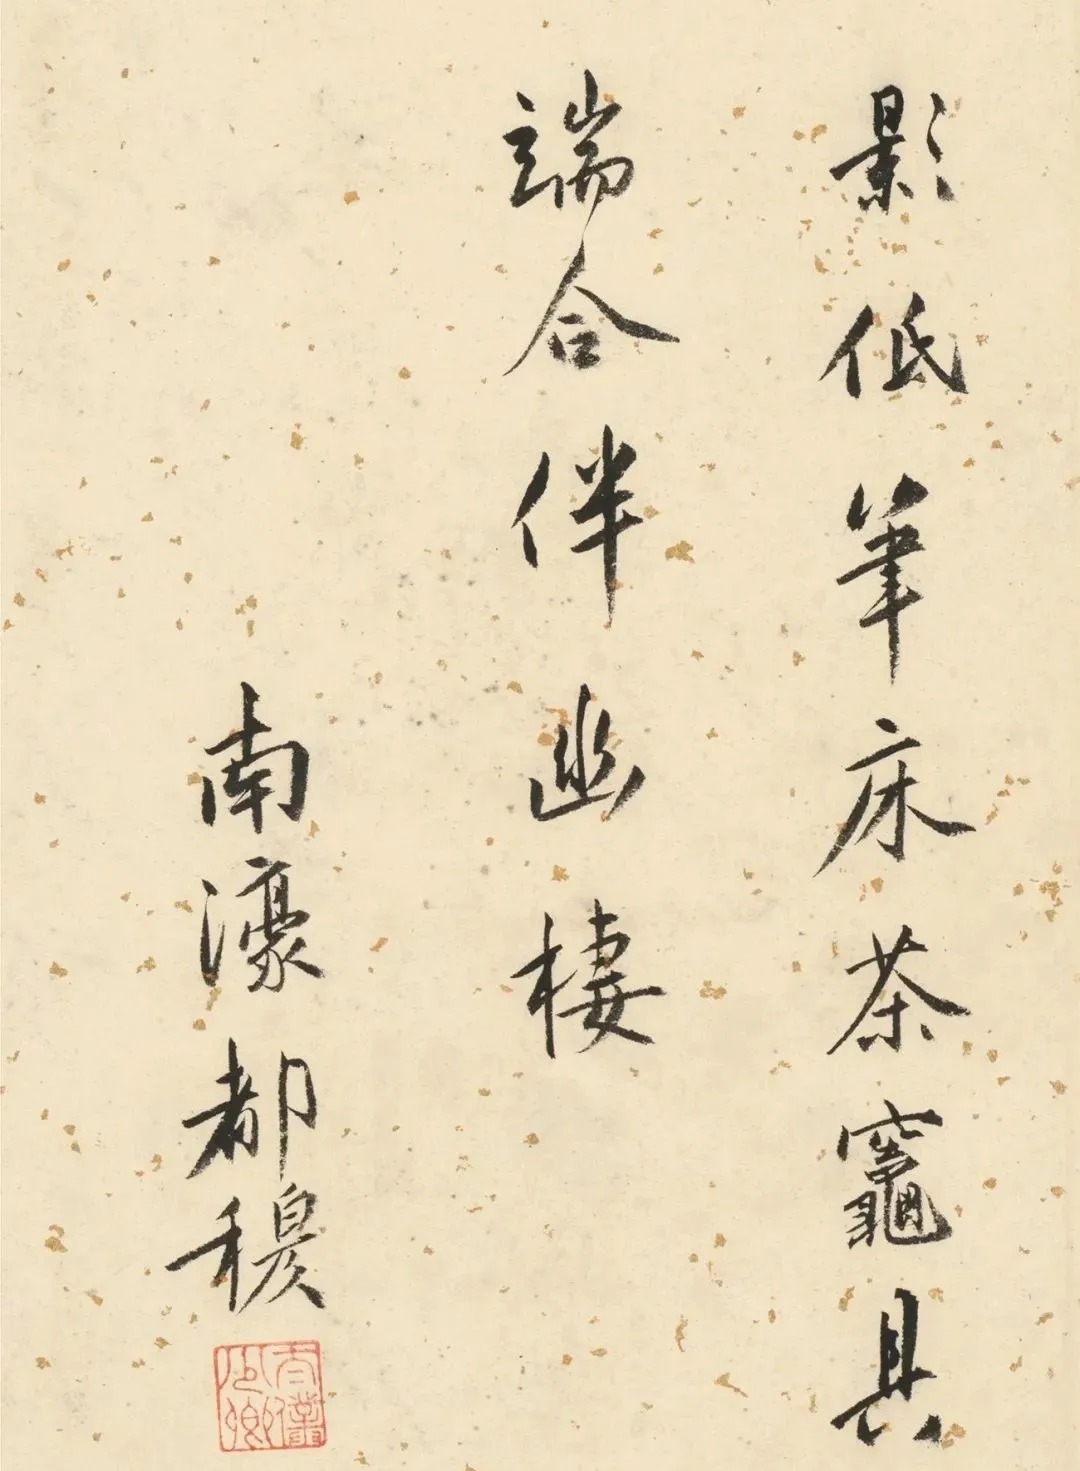 影低筆床茶竈具
端合伴幽棲
南濠都穆